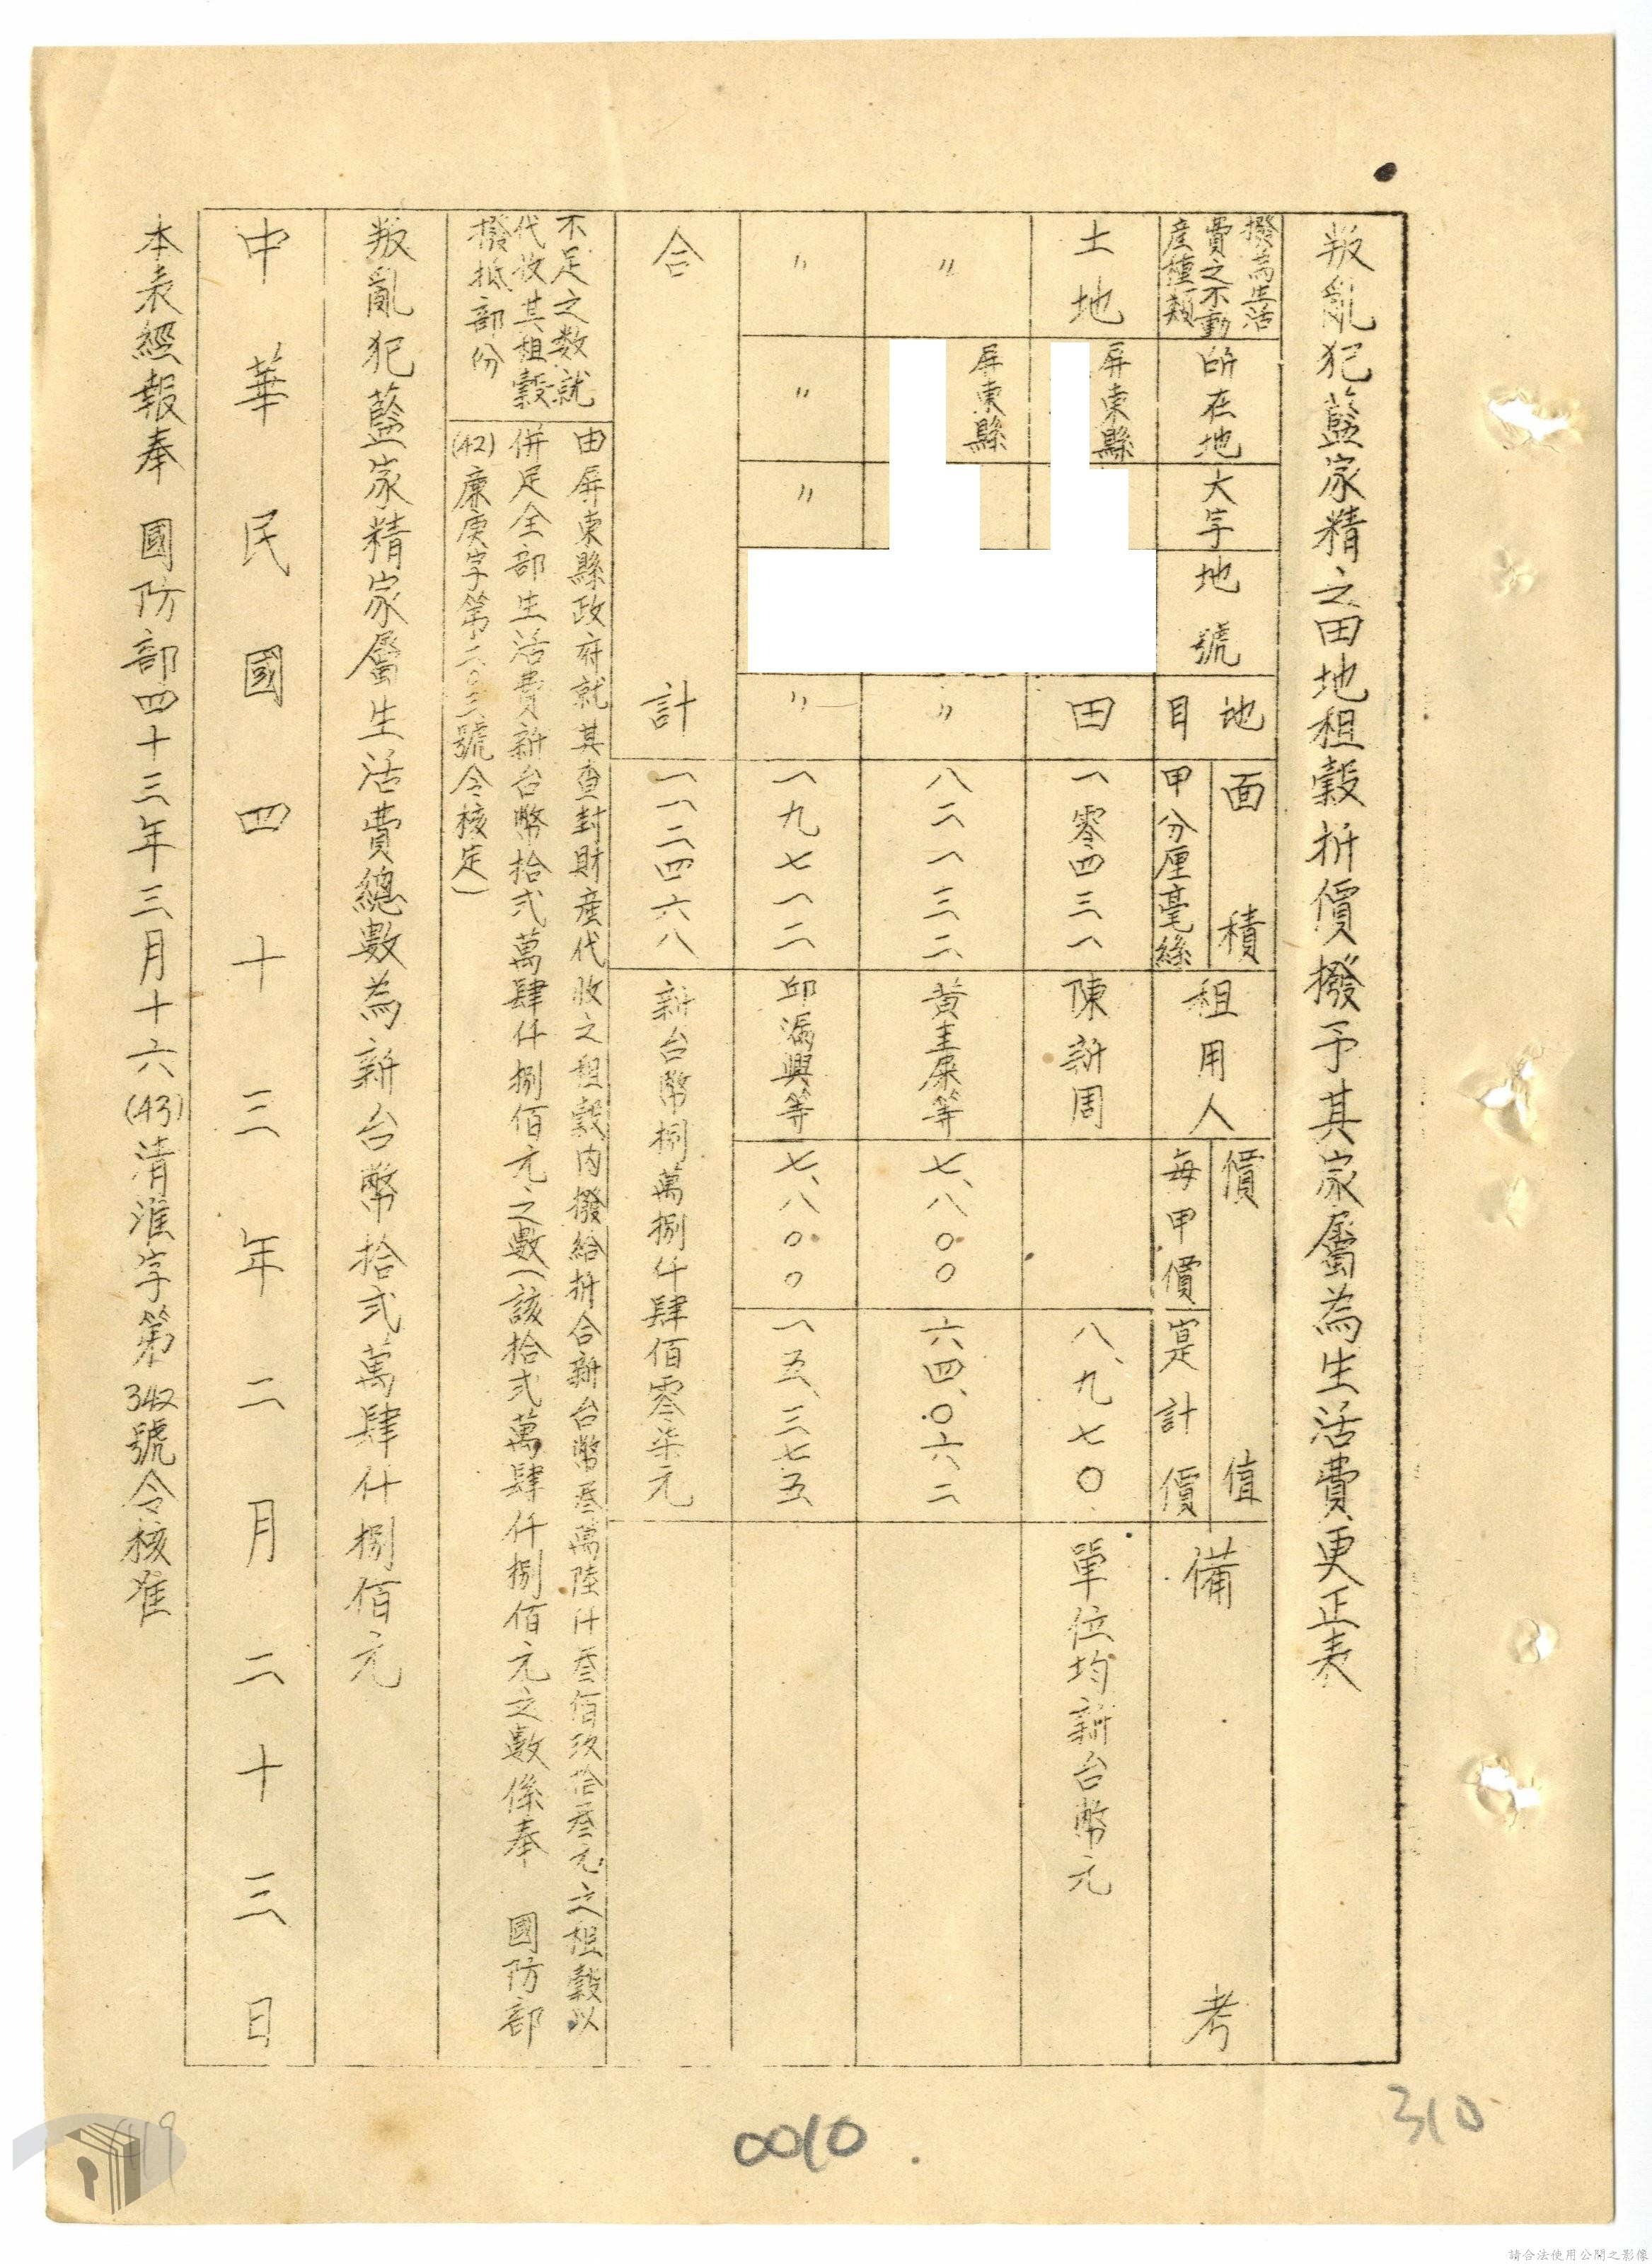 叛亂犯藍家精之田地租穀折價撥予其家屬為生活費更正表
撥為生活
費之不動
產種類
所在地
大字
地號
地目
面積
甲分厘毫絲
租用人
價值
每甲價
寔計價
備考
土地
屏東縣
田
一零四三一
陳新周
八、九七〇
單位均新台幣元
〃
屏東縣
〃
八二一三二
黃圭屎等
七、八〇〇
六四、〇六二
〃
〃
〃
〃
一九七一二
邱漏興等
七、八〇〇
一五、三七五
合計
一一二四六八
新台幣捌萬捌仟肆佰零柒元
不足之数就
代收其租穀
撥抵部份
由屏東縣政府就其查封財產代收之租穀內撥給折合新台幣叁萬陸仟叁佰玖拾叁元之租穀以
併足全部生活費新台幣拾弍萬肆仟捌佰元之數(該拾弍萬肆仟捌佰元之數係奉 國防部
(42)廉庚字第二〇三號令核定)
叛亂犯藍家精家屬生活費總數為新台幣拾弍萬肆仟捌佰元
中華民國四十三年二月二十三日
本表經報奉 國防部四十三年三月十六(43)清淮字第342號令核准
310
0010
119
請合法使用公開之影像